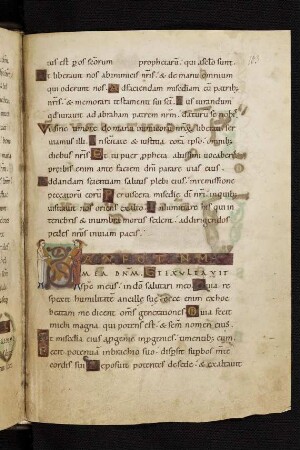 tus est p os scorum prophetarum. qui a sclo sunt
Et liberavit nos ab inimicis nris. & de manu omnium
qui oderunt nos. Ad faciendam misediam cu patrib;
nris. & memorari testamenti sui sci. Ius iurandum
qd iuravit ad abraham patrem nrm. daturu se nobis
Ut sine timore de manu inimicoru nroru liberati servi
viamus illi. In scitate & iustitia cora ipso. omnib;
dieb; nris. Et tu puer ppheta altissimi vocaberis.
preibis enim ante faciem dni parare vias eius.
Ad dandam scientiam salutis plebi eius. in remissione
peccatoru eoru. Per viscera misedie di nri. in quib;
visitavit nos oriens ex alto. Inluminare his qui in
tenebris & in umbra mortis sedent. ad dirigendos
pedes nros in viam pacis.
MEA DNM. ET EXULTAVIT
sps meus. in do salutari meo. Quia re
spexit humilitate ancille sue. ecce enim ex hoc
beatam me dicent oms generationes. Quia fecit
michi magna. qui potens est. & scm nomen eius.
Et miscdia eius a pgenie in pgenies. timentib; eum.
Fecit potentia in brachio suo. dispsit supbos mte
cordis sui. Deposuit potentes de sede. & exaltavit